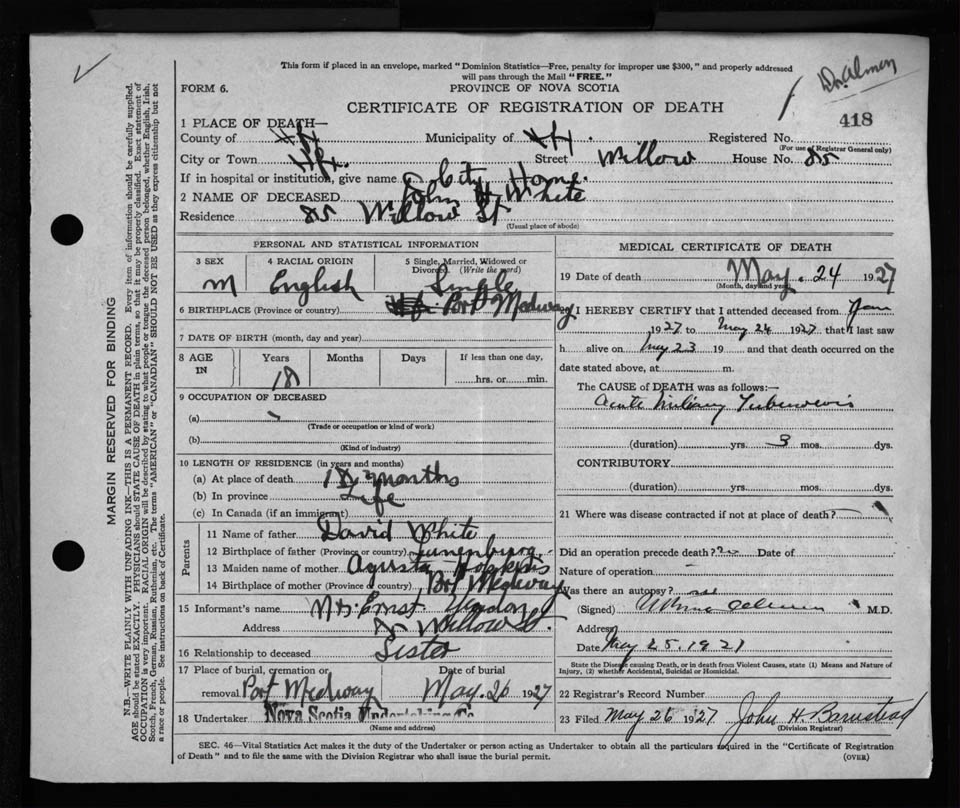 This form if placed in an envelope, marked "Dominion Statistics—Free, penalty for improper use $300," and properly addressed
will pass through the Mail "FREE."
Dr. Almon
FORM 6.
PROVINCE OF NOVA SCOTIA
CERTIFICATE OF REGISTRATION OF DEATH
418
1 PLACE OF DEATH—
County of Hfx Municipality of Hfx. Registered No.
(For use of Registrar General only)
City or Town Hfx. Street Willow House No. 85
If in hospital or institution, give name City Home.
2 NAME OF DECEASED John H White
Residence 85 Willow St
(Usual place of abode)
PERSONAL AND STATISTICAL INFORMATION
3 SEX 4 RACIAL ORIGIN 5 Single, Married, Widowed or
Divorced. (Write the word)
M English Single
6 BIRTHPLACE (Province or country) Port Medway
7 DATE OF BIRTH (month, day and year)
8 AGE IN Years Months Days If less than one day,
18 hrs. or min.
9 OCCUPATION OF DECEASED
(a)
(Trade or occupation or kind of work)
(b)
(Kind of industry)
10 LENGTH OF RESIDENCE (in years and months)
(a) At place of death 18 months
(b) In province Life
(c) In Canada (if an immigrant)
Parents
11 Name of father David White
12 Birthplace of father (Province or country) Lunenburg.
13 Maiden name of mother Agusta Hopkins
14 Birthplace of mother (Province or country) Port Medway
15 Informant's name Mrs. Ernst
Address Willow St.
16 Relationship to deceased Sister
17 Place of burial, cremation or Date of burial
removal Port Medway May. 26 1927
18 Undertaker Nova Scotia Undertaking Co
(Name and address)
MEDICAL CERTIFICATE OF DEATH
19 Date of death May. 24 1927
(Month, day and year)
20 I HEREBY CERTIFY that I attended deceased from
1927 to May 24 1927 that I last saw
h alive on May 23 19 and that death occurred on the
date stated above, at m.
The CAUSE of DEATH was as follows:—
Acute Miliary Tuberculosis
(duration) yrs. 3 mos. dys.
CONTRIBUTORY
(duration) yrs. mos. dys.
21 Where was disease contracted if not at place of death?
Did an operation precede death? no Date of
Nature of operation
Was there an autopsy? no
(Signed) M.D.
Address
Date May 25. 1927
State the Disease causing Death, or in death from Violent Causes, state (1) Means and Nature of
Injury, (2) whether Accidental, Suicidal or Homicidal.
22 Registrar's Record Number
23 Filed May 26 1927 John H. Barnstead
(Division Registrar)
SEC. 46—Vital Statistics Act makes it the duty of the Undertaker or person acting as Undertaker to obtain all the particulars required in the "Certificate of Registration
of Death" and to file the same with the Division Registrar who shall issue the burial permit.
(OVER)
MARGIN RESERVED FOR BINDING
N.B.—WRITE PLAINLY WITH UNFADING INK—THIS IS A PERMANENT RECORD. Every item of information should be carefully supplied.
AGE should be stated EXACTLY. PHYSICIANS should STATE CAUSE OF DEATH in plain terms, so that it may be properly classified. Exact statement of
OCCUPATION is very important. RACIAL ORIGIN will be described by stating to what people or tongue the deceased person belonged, whether English, Irish,
Scotch, French, German, Russian, Ruthenian, etc. The terms "AMERICAN" or "CANADIAN" SHOULD NOT BE USED as they express citizenship but not
a race or people. See instructions on back of Certificate.